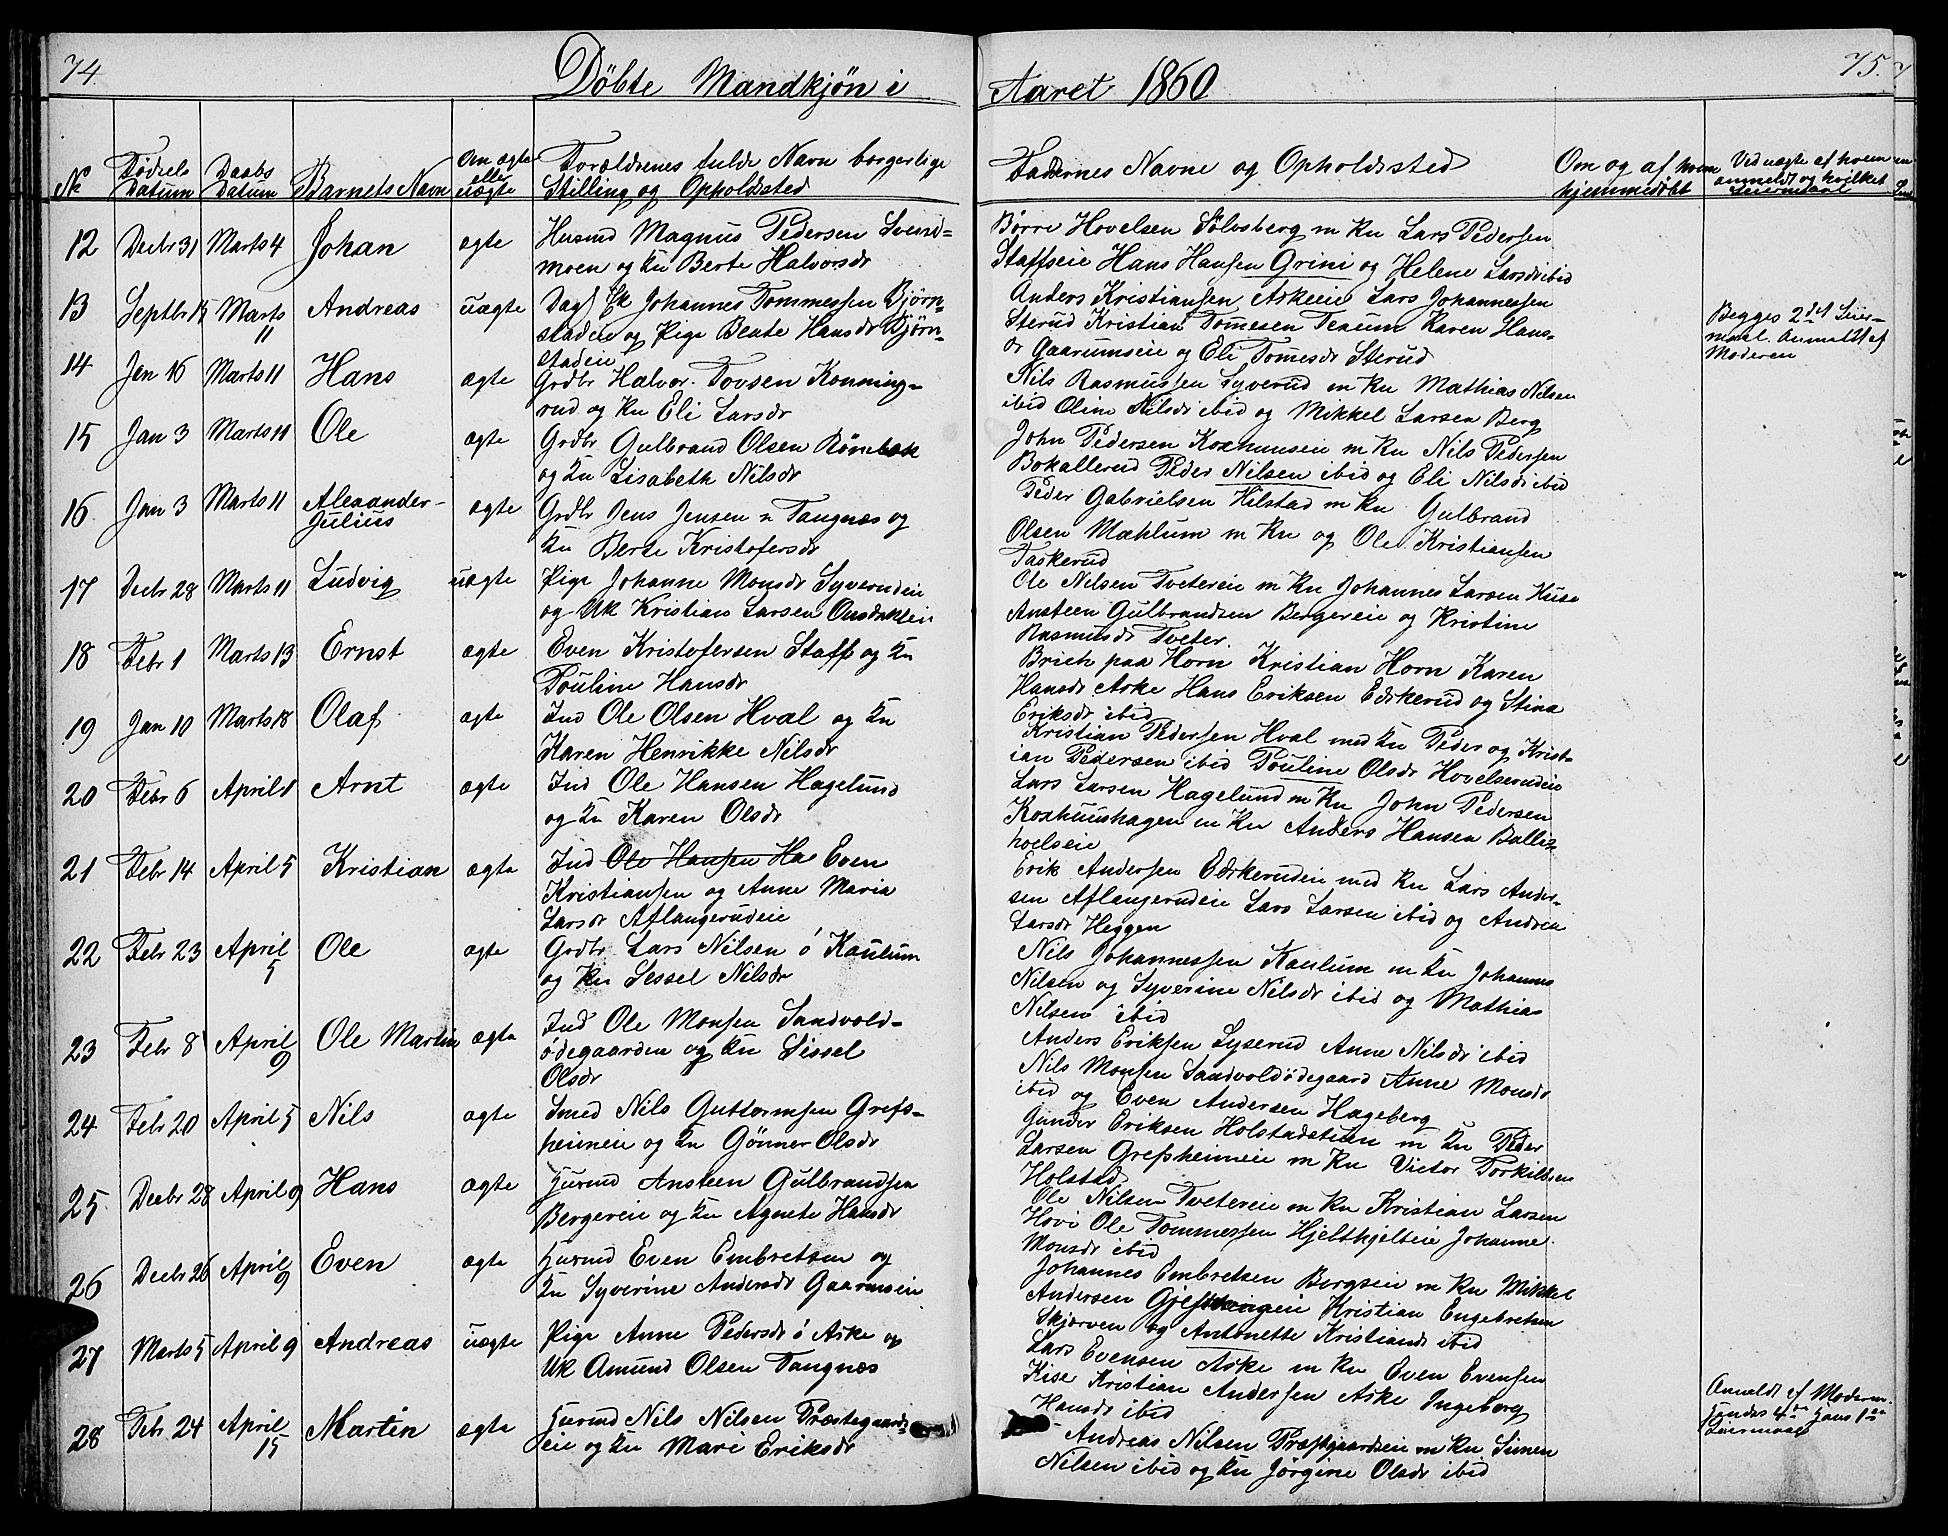 74.
Döbte Mandkjön i
No
Födsels Datum
Daabs Datum
Barnets Navn
Om ægte eller uægte
Forældrenes fulde Navn borgerlige
Stilling og Opholdssted
12 Decbr 31 Marts 4 Johan ægte Husmd Magnus Pedersen Svend=
moen og Ku Berte Halvorsdr
13 Septbr 15 Marts 11 Andreas uægte Dags fk Johannes Tommessen Björn=
stadeie og Pige Beate Hansdr Björn=
stadeie
14 Jan 16 Marts 11 Hans ægte Grdbr Halvor Tovsen Konning=
rud og Ku Eli Larsdr
15 Jan 3 Marts 11 Ole ægte Grdbr Gulbrand Olsen Rönebæk
og Ku Lisabeth Nilsdr
16 Jan 3 Marts 11 Alexander-
Julius ægte Grdbr Jens Jensen n Tangnæs og
Ku Berte Kristofersdr
17 Decbr 28 Marts 11 Ludvig uægte Pige Johanne Monsdr Syverudeie
og Uk Kristian Larsen
18 Febr 1 Marts 13 Ernst ægte Even Kristofersen Staff og Ku
Pouline Hansdr
19 Jan 10 Marts 18 Olaf ægte Ind Ole Olsen Hval og Ku
Karen Henrikke Nilsdr
20 Febr 6 April 1 Arnt ægte Ind Ole Hansen Hagelund
og Ku Karen Olsdr
21 Febr 14 April 5 Kristian ægte Ind Ole Hansen Ha Even
Kristiansen og Anne Maria
Larsdr Aflangerudeie
22 Febr 23 April 5 Ole ægte Grdbr Lars Nilsen ö Kaulum
og Ku Sessel Nilsdr
23 Febr 8 April 9 Ole Martin ægte Ind Ole Monsen Sandvold=
ödegaarden og Ku Sissel
Olsdr
24 Febr 20 April 5 Nils ægte Smed Nils Guttormsen Grefs=
heimeie og Ku Gönner Olsdr
25 Decbr 28 April 9 Hans ægte Husmd Ansteen Gulbrandsen
Bergereie og Ku Agnete Hansdr
26 Decbr 26 April 9 Even ægte Husmd Even Embretsen og
Ku Syverine Andersdr Gaarumseie
27 Marts 5 April 9 Andreas uægte Pige Anne Pedersdr ö Aske og
Uk Amund Olsen Tangnæs
28 Febr 24 April 15 Martin ægte Husmd Nils Nilsen Prestegaards=
eie og Ku Mari Eriksdr
75.
Aaret 1860
Faddernes Navne og Opholdssted
Om og af hvem
hjemmedöbt
Ved uægte af hvem
anmeldt og hvilket
Leiermaal
Börre Hovelsen Sölvsberg m Ku Lars Pedersen
Staffseie Hans Hansen Grini og Helene Larsdr ibid
Anders Kristiansen Askeeie Lars Johannessen
Sterud Kristian Tomesen Teaum Karen Hans-
dr Gaarumseie og Eli Tomesdr Sterud
Begges 2det Leier-
maal. Anmeldt af
Moderen
Nils Rasmussen Syverud m Ku Mathias Nilsen
ibid Oline Nilsdr ibid og Mikkel Larsen Berg
John Pedersen Korhuuseie m Ku Nils Pedersen
Bokallerud Peder Nilsen ibid og Eli Nilsdr ibid
Peder Gabrielsen Hilstad m Ku Gulbrand
Olsen Mæhlum m Ku og Ole Kristiansen
Taskerud
Ole Nilsen Tvetereie m Ku Johannes Larsen Huse
Ansteen Gulbrandsen Bergereie og Kristine
Rasmusdr Tveter.
Brich paa Horn Kristian Horn Karen
Hansdr Aske Hans Eriksen Edskerud og Stina
Eriksdr ibid
Kristian Pedersen Hval med Ku Peder og Krist-
ian Pedersen ibid Pouline Olsdr Hovelserudeie
Lars Larsen Hagelund m Ku John Pedersen
Korhuushagen m Ku Anders Hansen Balls=
hoelseie
Erik Andersen Edskerudeie med Ku Lars Ander-
sen Aflangerudeie Lars Larsen ibid og Andrea
Larsdr Heggen
Nils Johannessen Kaulum m Ku Johannes
Nilsen og Syverine Nilsdr ibid og Mathias
Nilsen ibid
Anders Eriksen Lyserud Anne Nilsdr ibid
Nils Monsen Sandvoldödegaard Anne Monsdr
ibid og Even Andersen Hageberg
Gunder Eriksen Holstadstuen m Ku Peder
Larsen Grefsheimeie m Ku Victor Torkildsen
Holstad
Ole Nilsen Tvetereie m Ku Kristian Larsen
Hovi Ole Tommessen Hjeltkjelteie Johanne
Monsdr ibid
Johannes Embretsen Bergseie m Ku Mikkel
Andersen Kristian Engebretsen
Skjerven og Antonette Kristiansdr ibid
Lars Evensen Aske m Ku Even Evensen
Kise Kristian Andersen Aske Ingeborg
Hansdr ibid
Anmeldt af Moderen.
Hendes 4de Hans 1ste
Leiermaal
Andreas Nilsen Præstgaardseie m Ku Simen
Nilsen ibid og Ku Jörgine Olsdr ibid